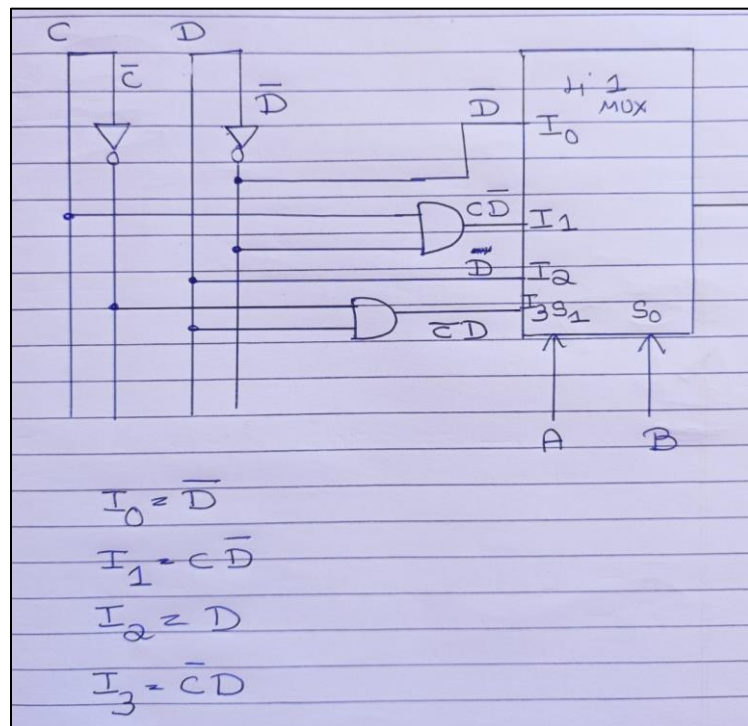 C D
C̅ D̅
D̅ 4:1
MUX
I₀
CD̅ I₁
D I₂
I₃ S₁ S₀
C̅D
A B
I₀ = D̅
I₁ = CD̅
I₂ = D
I₃ = C̅D